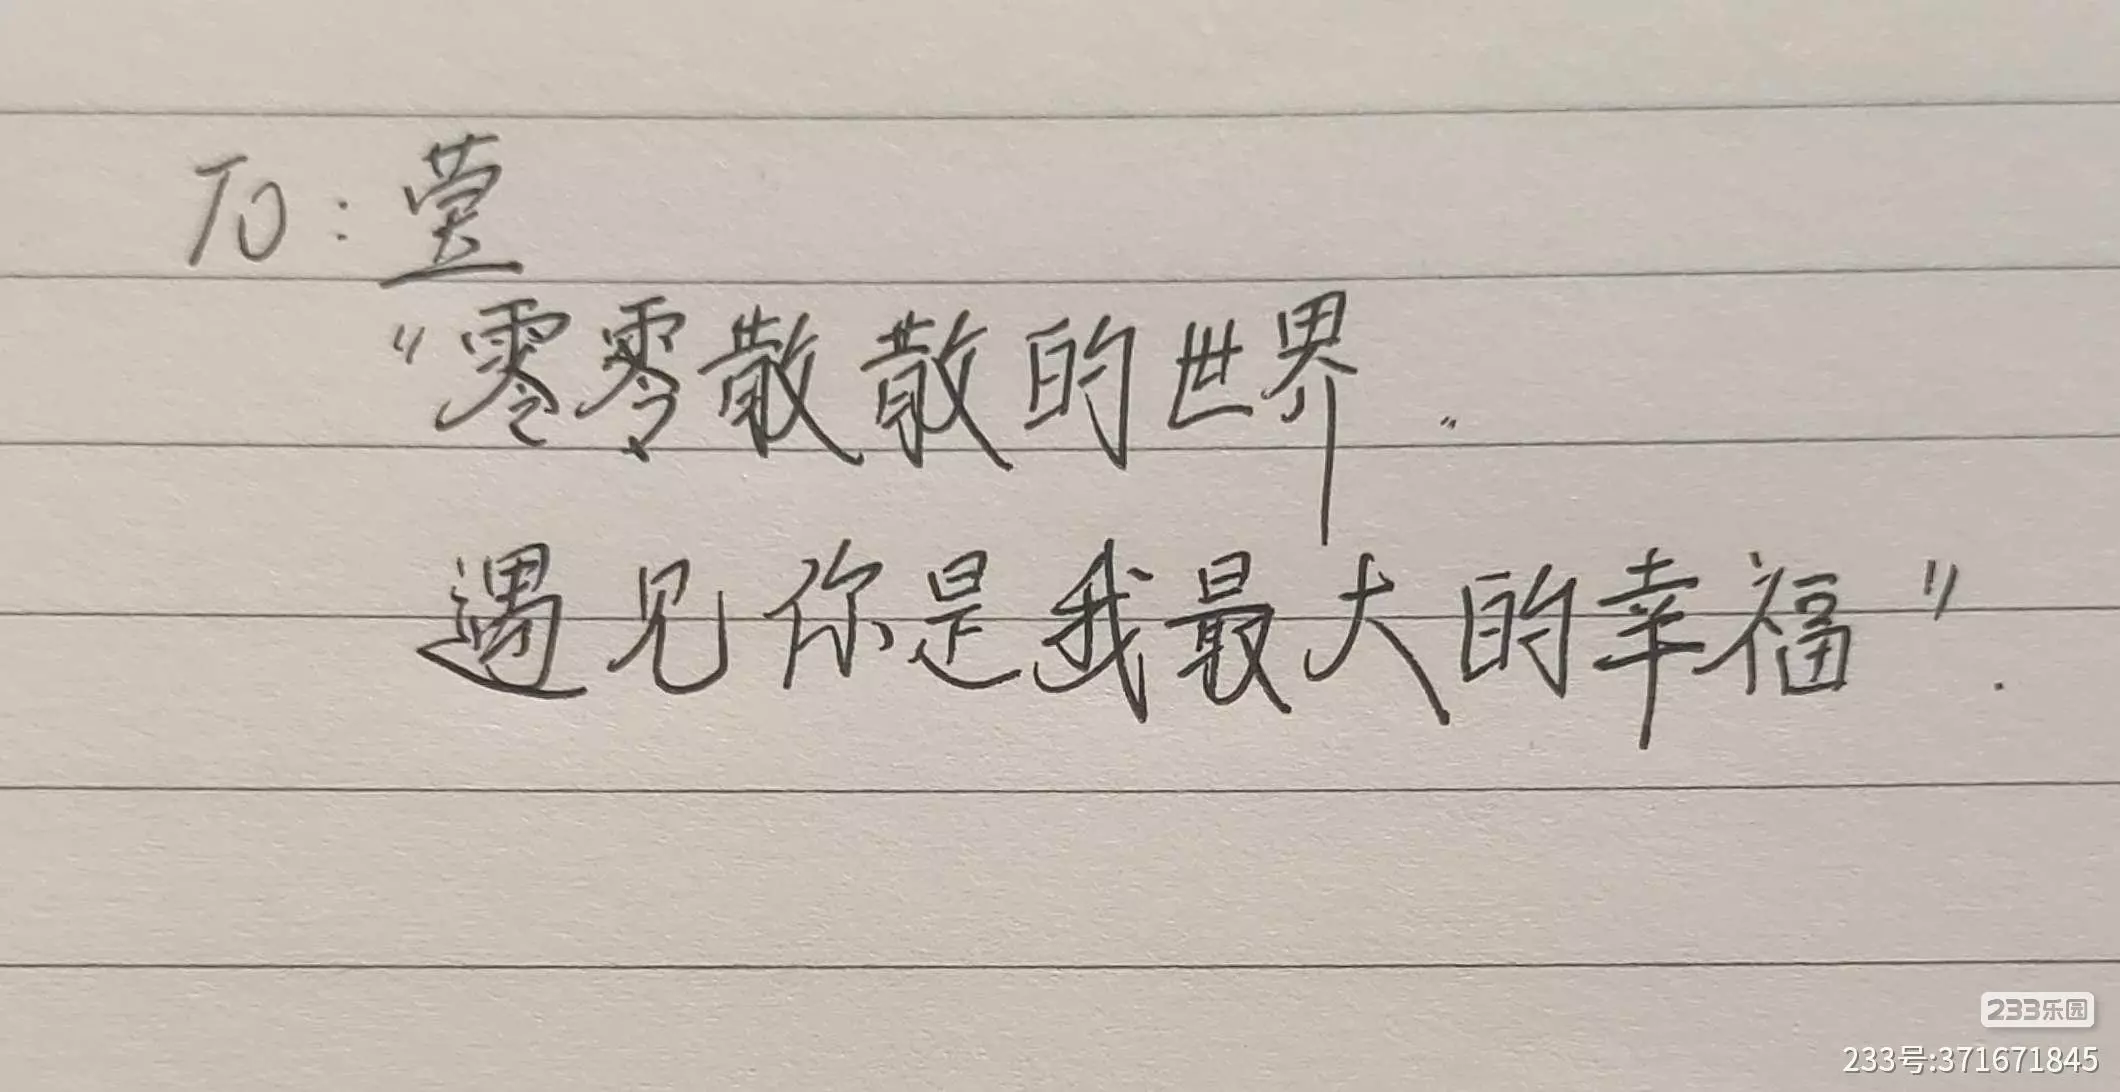 To:萱
"零零散散的世界..
遇见你是我最大的幸福".
233乐园
233号:371671845